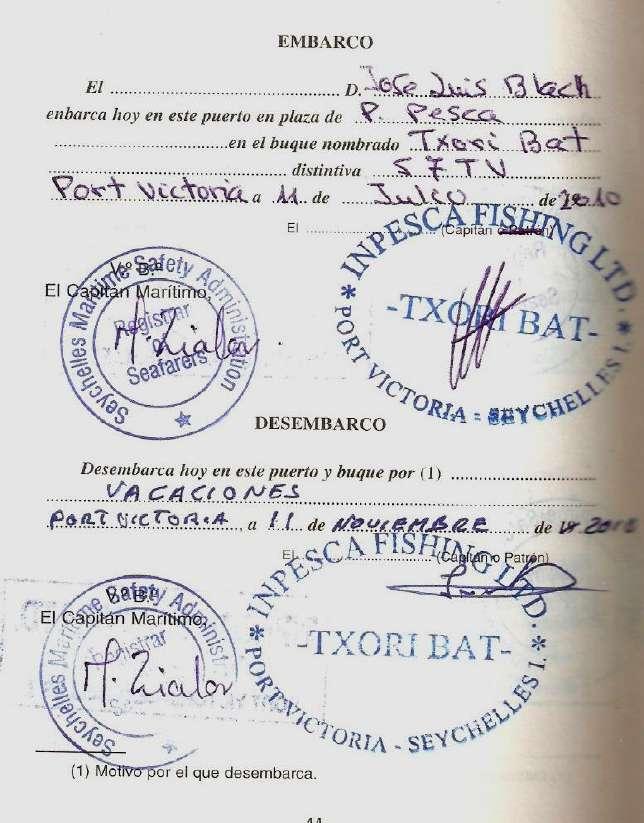 EMBARCO
El .......... D. Jose Luis Blach
enbarca hoy en este puerto en plaza de P. Pesca
en el buque nombrado Txori Bat
distintiva S7TV
Port Victoria a 11 de Julio de 2010
El .......... (Capitán o Patrón)
INPESCA FISHING LTD.
-TXORI BAT-
* PORT VICTORIA - SEYCHELLES I. *
V.º B.º
El Capitán Marítimo,
Seychelles Maritime Safety Administration
Registrar
Seafarers
DESEMBARCO
Desembarca hoy en este puerto y buque por (1) ..........
VACACIONES
PORT VICTORIA, a 11 de NOVIEMBRE de 2010
El .......... (Capitán o Patrón)
INPESCA FISHING LTD.
-TXORI BAT-
* PORT VICTORIA - SEYCHELLES I. *
V.º B.º
El Capitán Marítimo,
Seychelles Maritime Safety Administ
Registrar
(1) Motivo por el que desembarca.
44